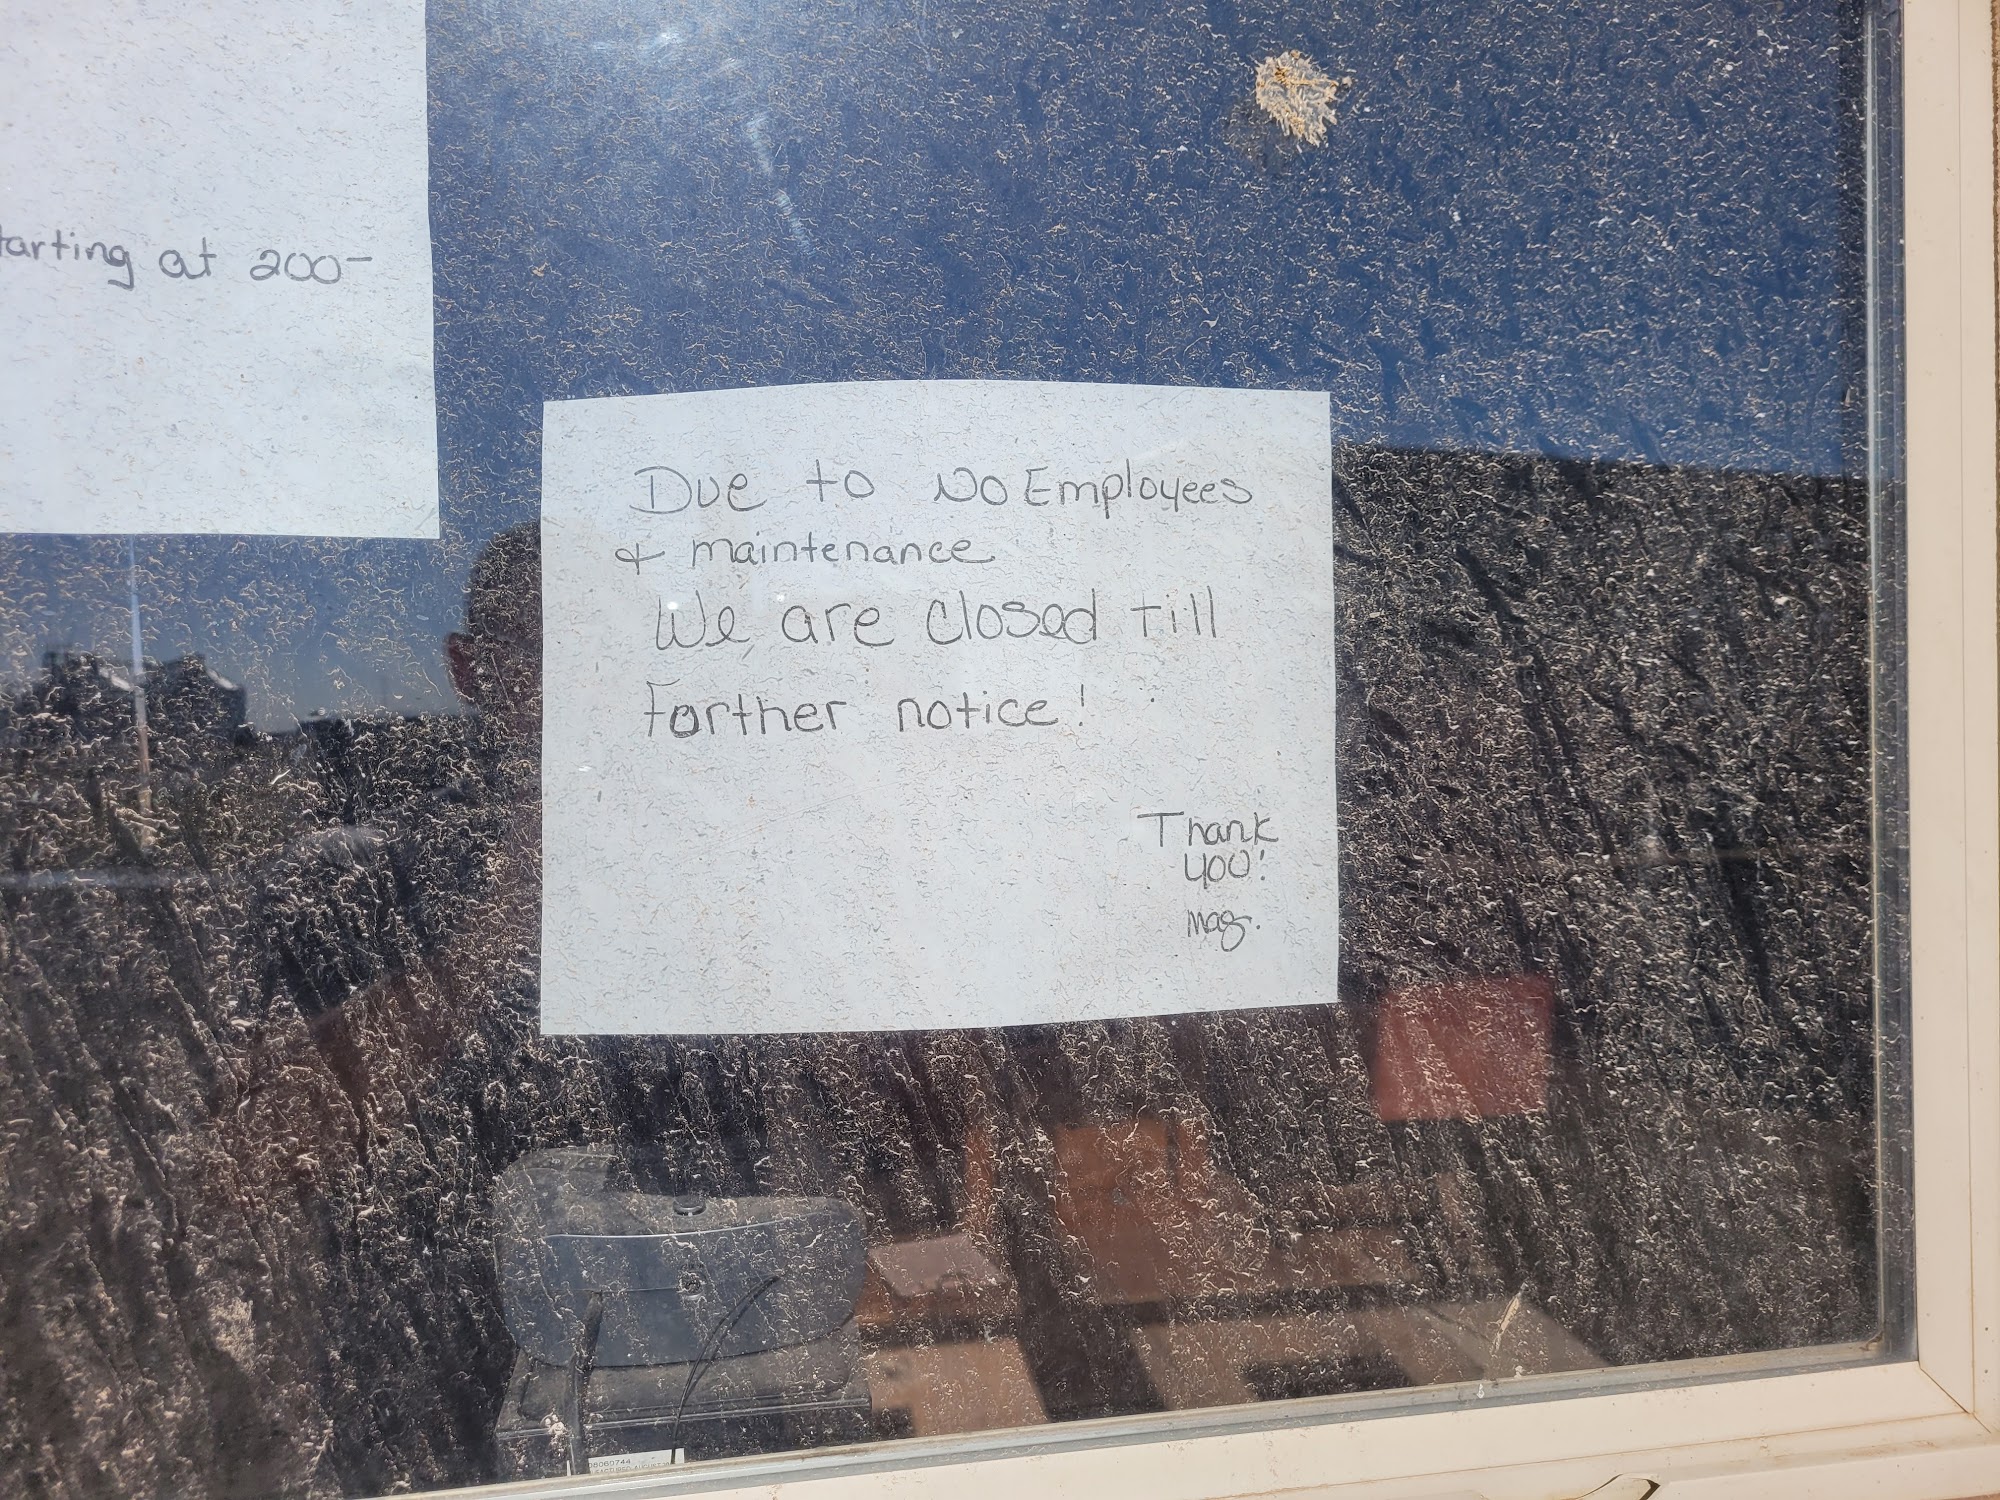 tarting at 200-
Due to No Employees
& maintenance
We are closed till
Forther notice!
Thank
you!
mag.
08060744